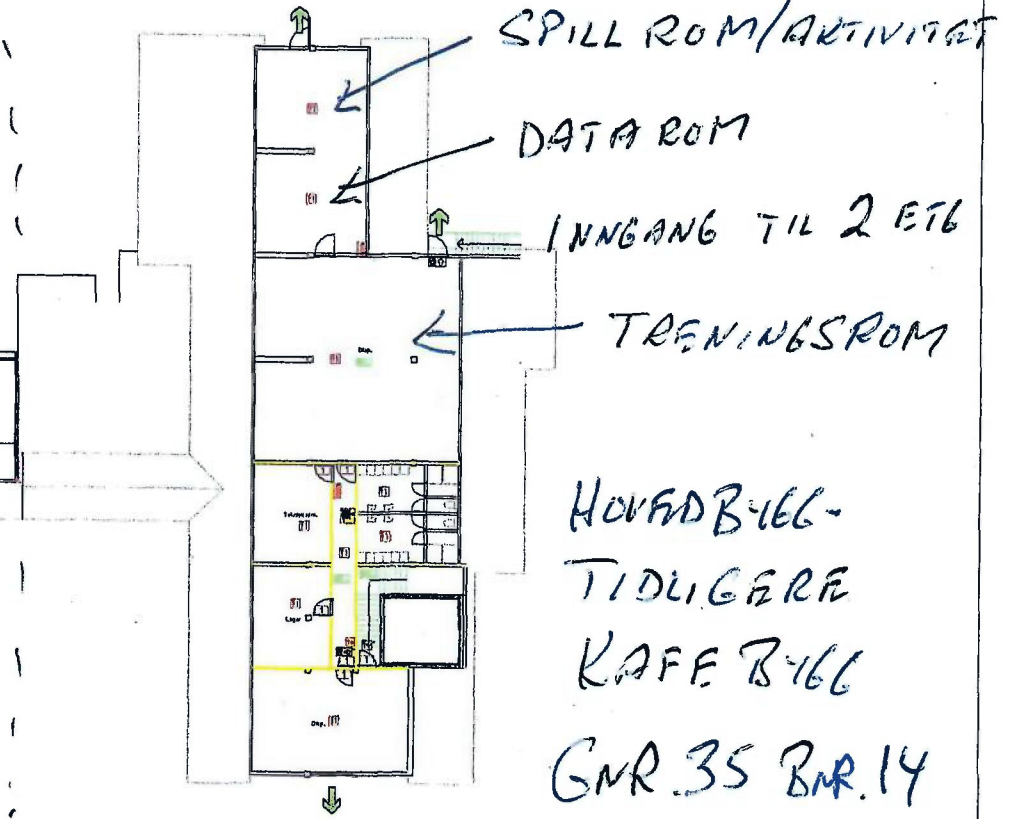 SPILL ROM/AKTIVITET
DATA ROM
INNGANG TIL 2 ETG
TRENINGSROM
Disp.
HOVEDBYGG-
TIDLIGERE
KAFE BYGG
GNR.35 BNR.14
Lager
Disp.